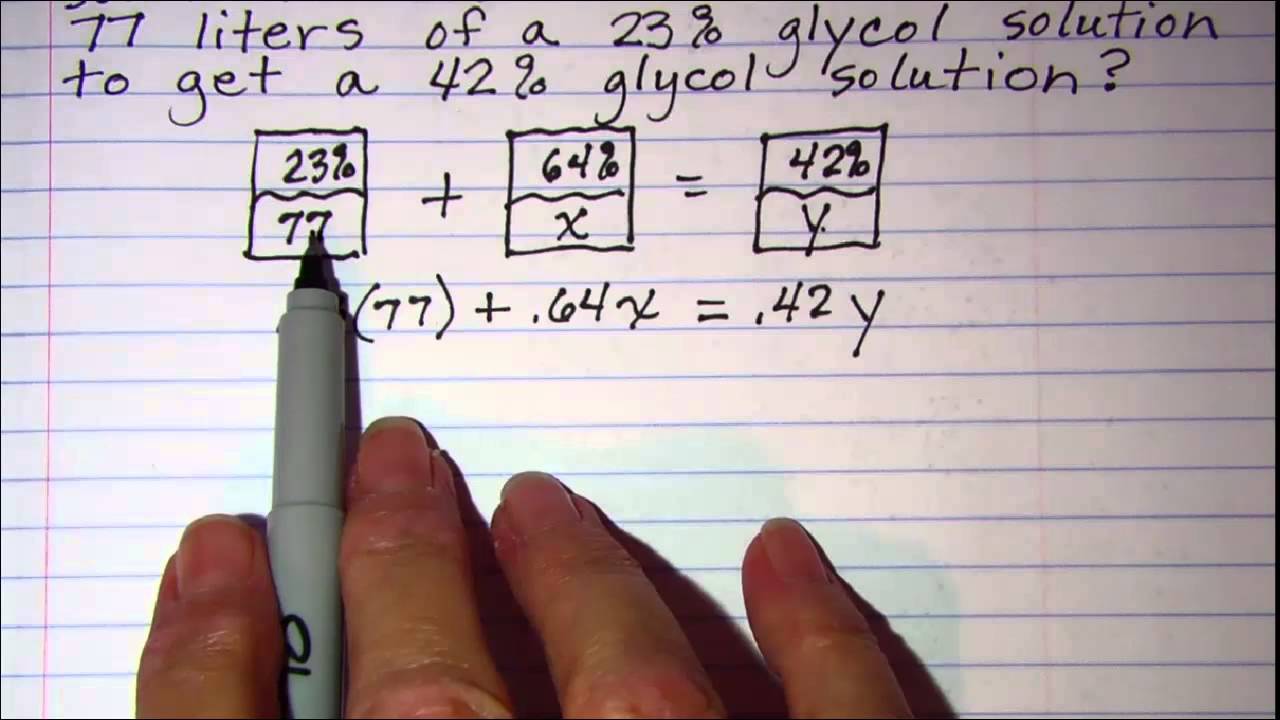 77 liters of a 23% glycol solution
to get a 42% glycol solution?
23% + 64% = 42%
77 x y
(77) + .64x = .42y